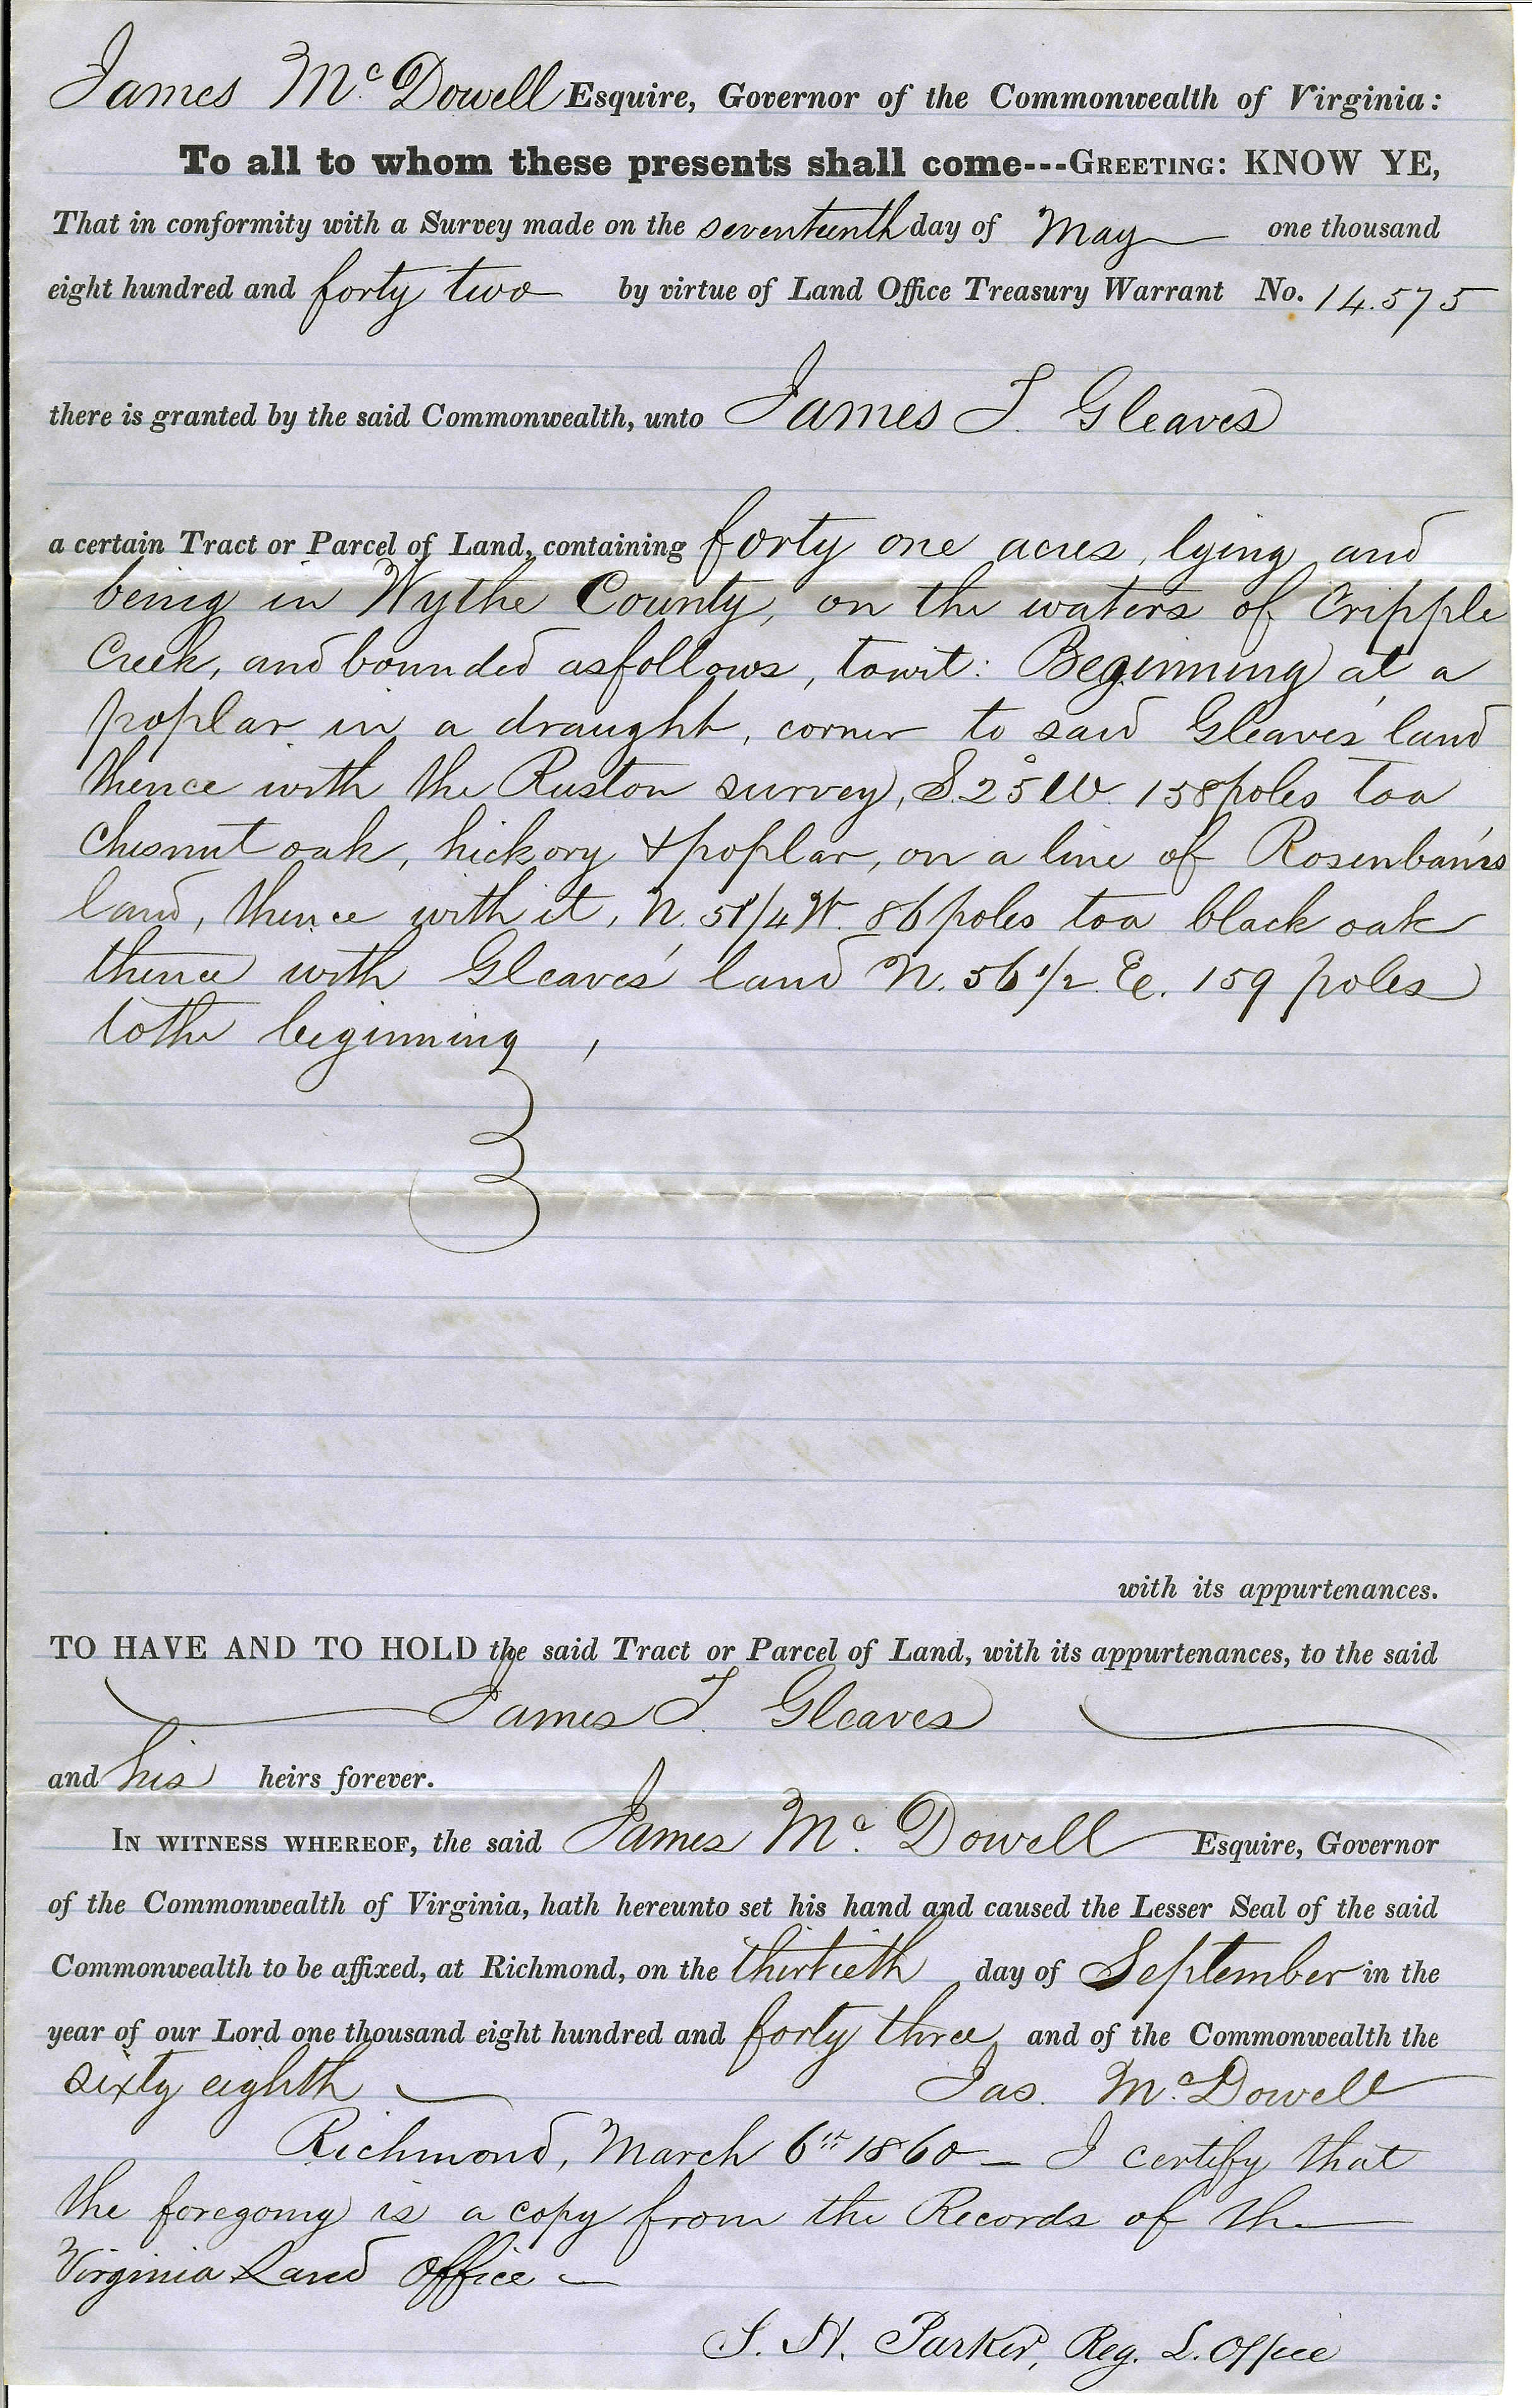 James Mc. Dowell Esquire, Governor of the Commonwealth of Virginia:
To all to whom these presents shall come---GREETING: KNOW YE,
That in conformity with a Survey made on the seventeenth day of May one thousand
eight hundred and forty two by virtue of Land Office Treasury Warrant No. 14.575
there is granted by the said Commonwealth, unto James T. Gleaves
a certain Tract or Parcel of Land, containing forty one acres, lying and
being in Wythe County, on the waters of Cripple
Creek, and bounded as follows, towit: Beginning at a
poplar in a draught, corner to said Gleaves' land
thence with the Ruston survey, S. 25° W. 158 poles to a
chesnut oak, hickory & poplar, on a line of Rosenbam's
land, thence with it, N. 51/4 W. 86 poles to a black oak
thence with Gleaves' land N. 56 1/2. E. 159 poles
to the beginning,
with its appurtenances.
TO HAVE AND TO HOLD the said Tract or Parcel of Land, with its appurtenances, to the said
James T. Gleaves
and his heirs forever.
IN WITNESS WHEREOF, the said James Mc. Dowell Esquire, Governor
of the Commonwealth of Virginia, hath hereunto set his hand and caused the Lesser Seal of the said
Commonwealth to be affixed, at Richmond, on the thirtieth day of September in the
year of our Lord one thousand eight hundred and forty three and of the Commonwealth the
sixty eighth Jas. Mc.Dowell
Richmond, March 6th 1860 — I certify that
the foregoing is a copy from the Records of the
Virginia Land Office —
S. H. Parker, Reg. L. Office